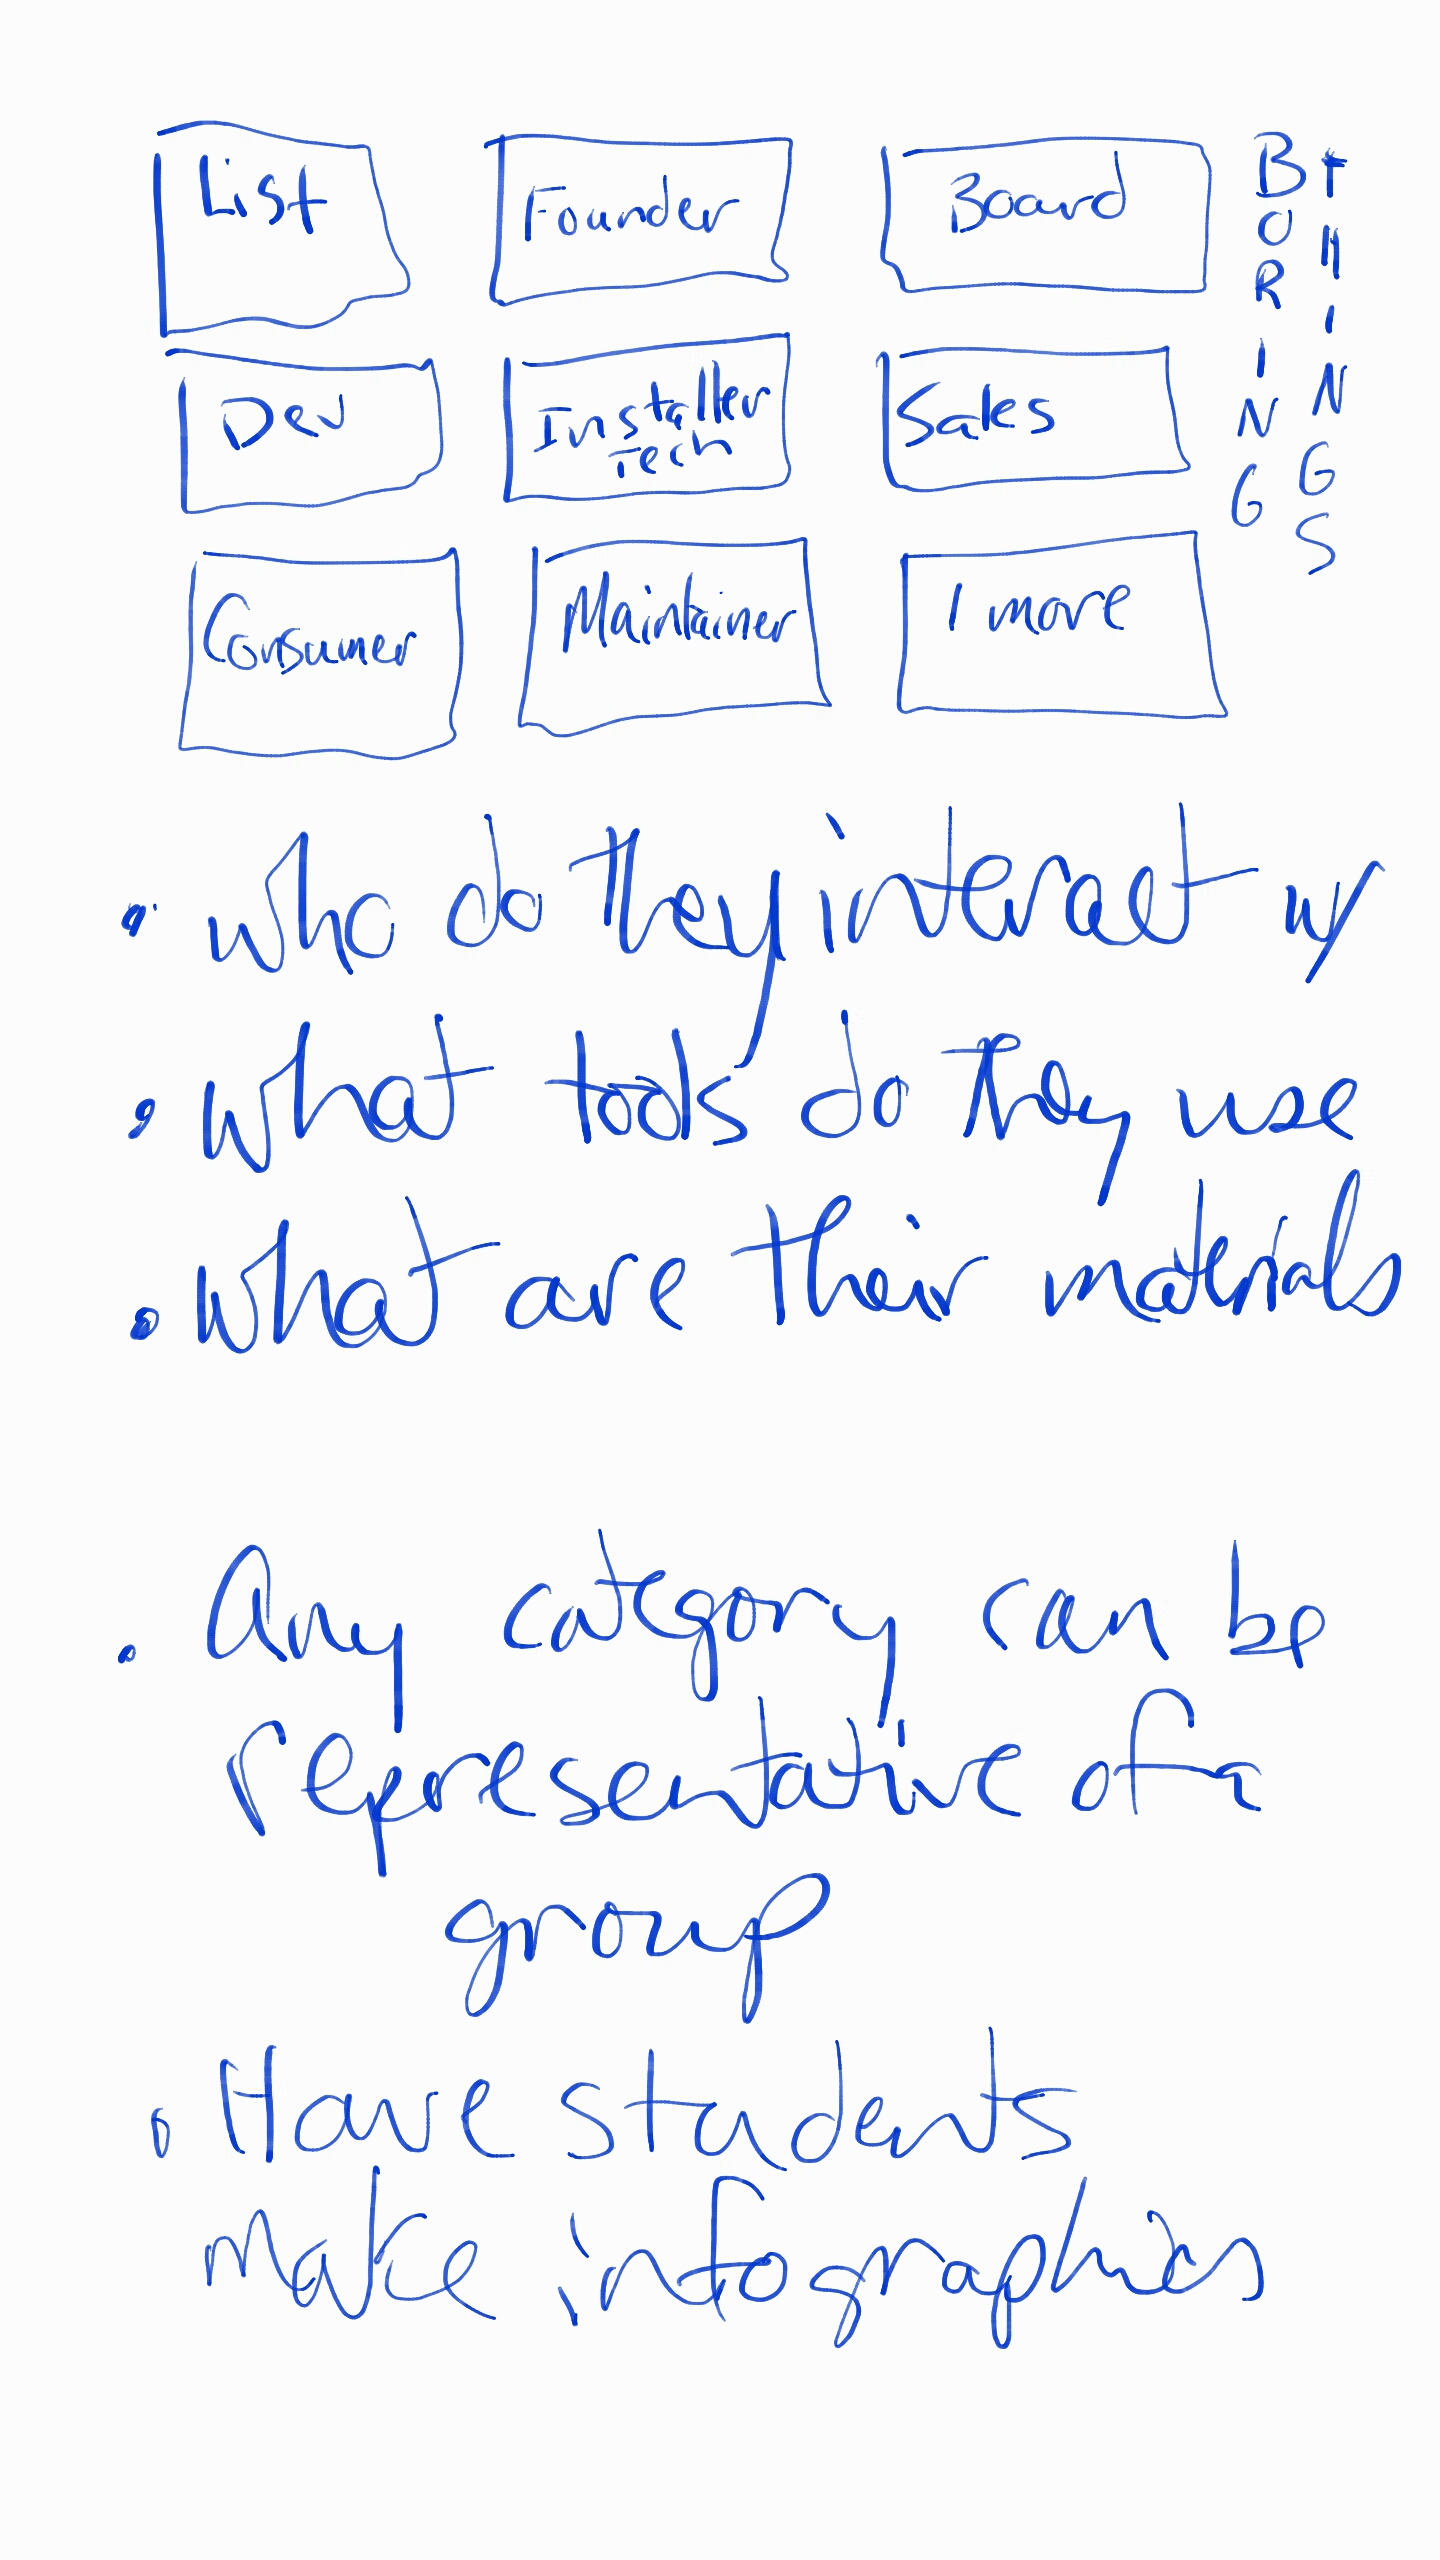 List
Founder
Board
BORING
THINGS
Dev
Installer
Tech
Sales
Consumer
Maintainer
1 more
• who do they interact w/
• what tools do they use
• what are their materials
• Any category can be
representative of a
group
• Have students
make infographics